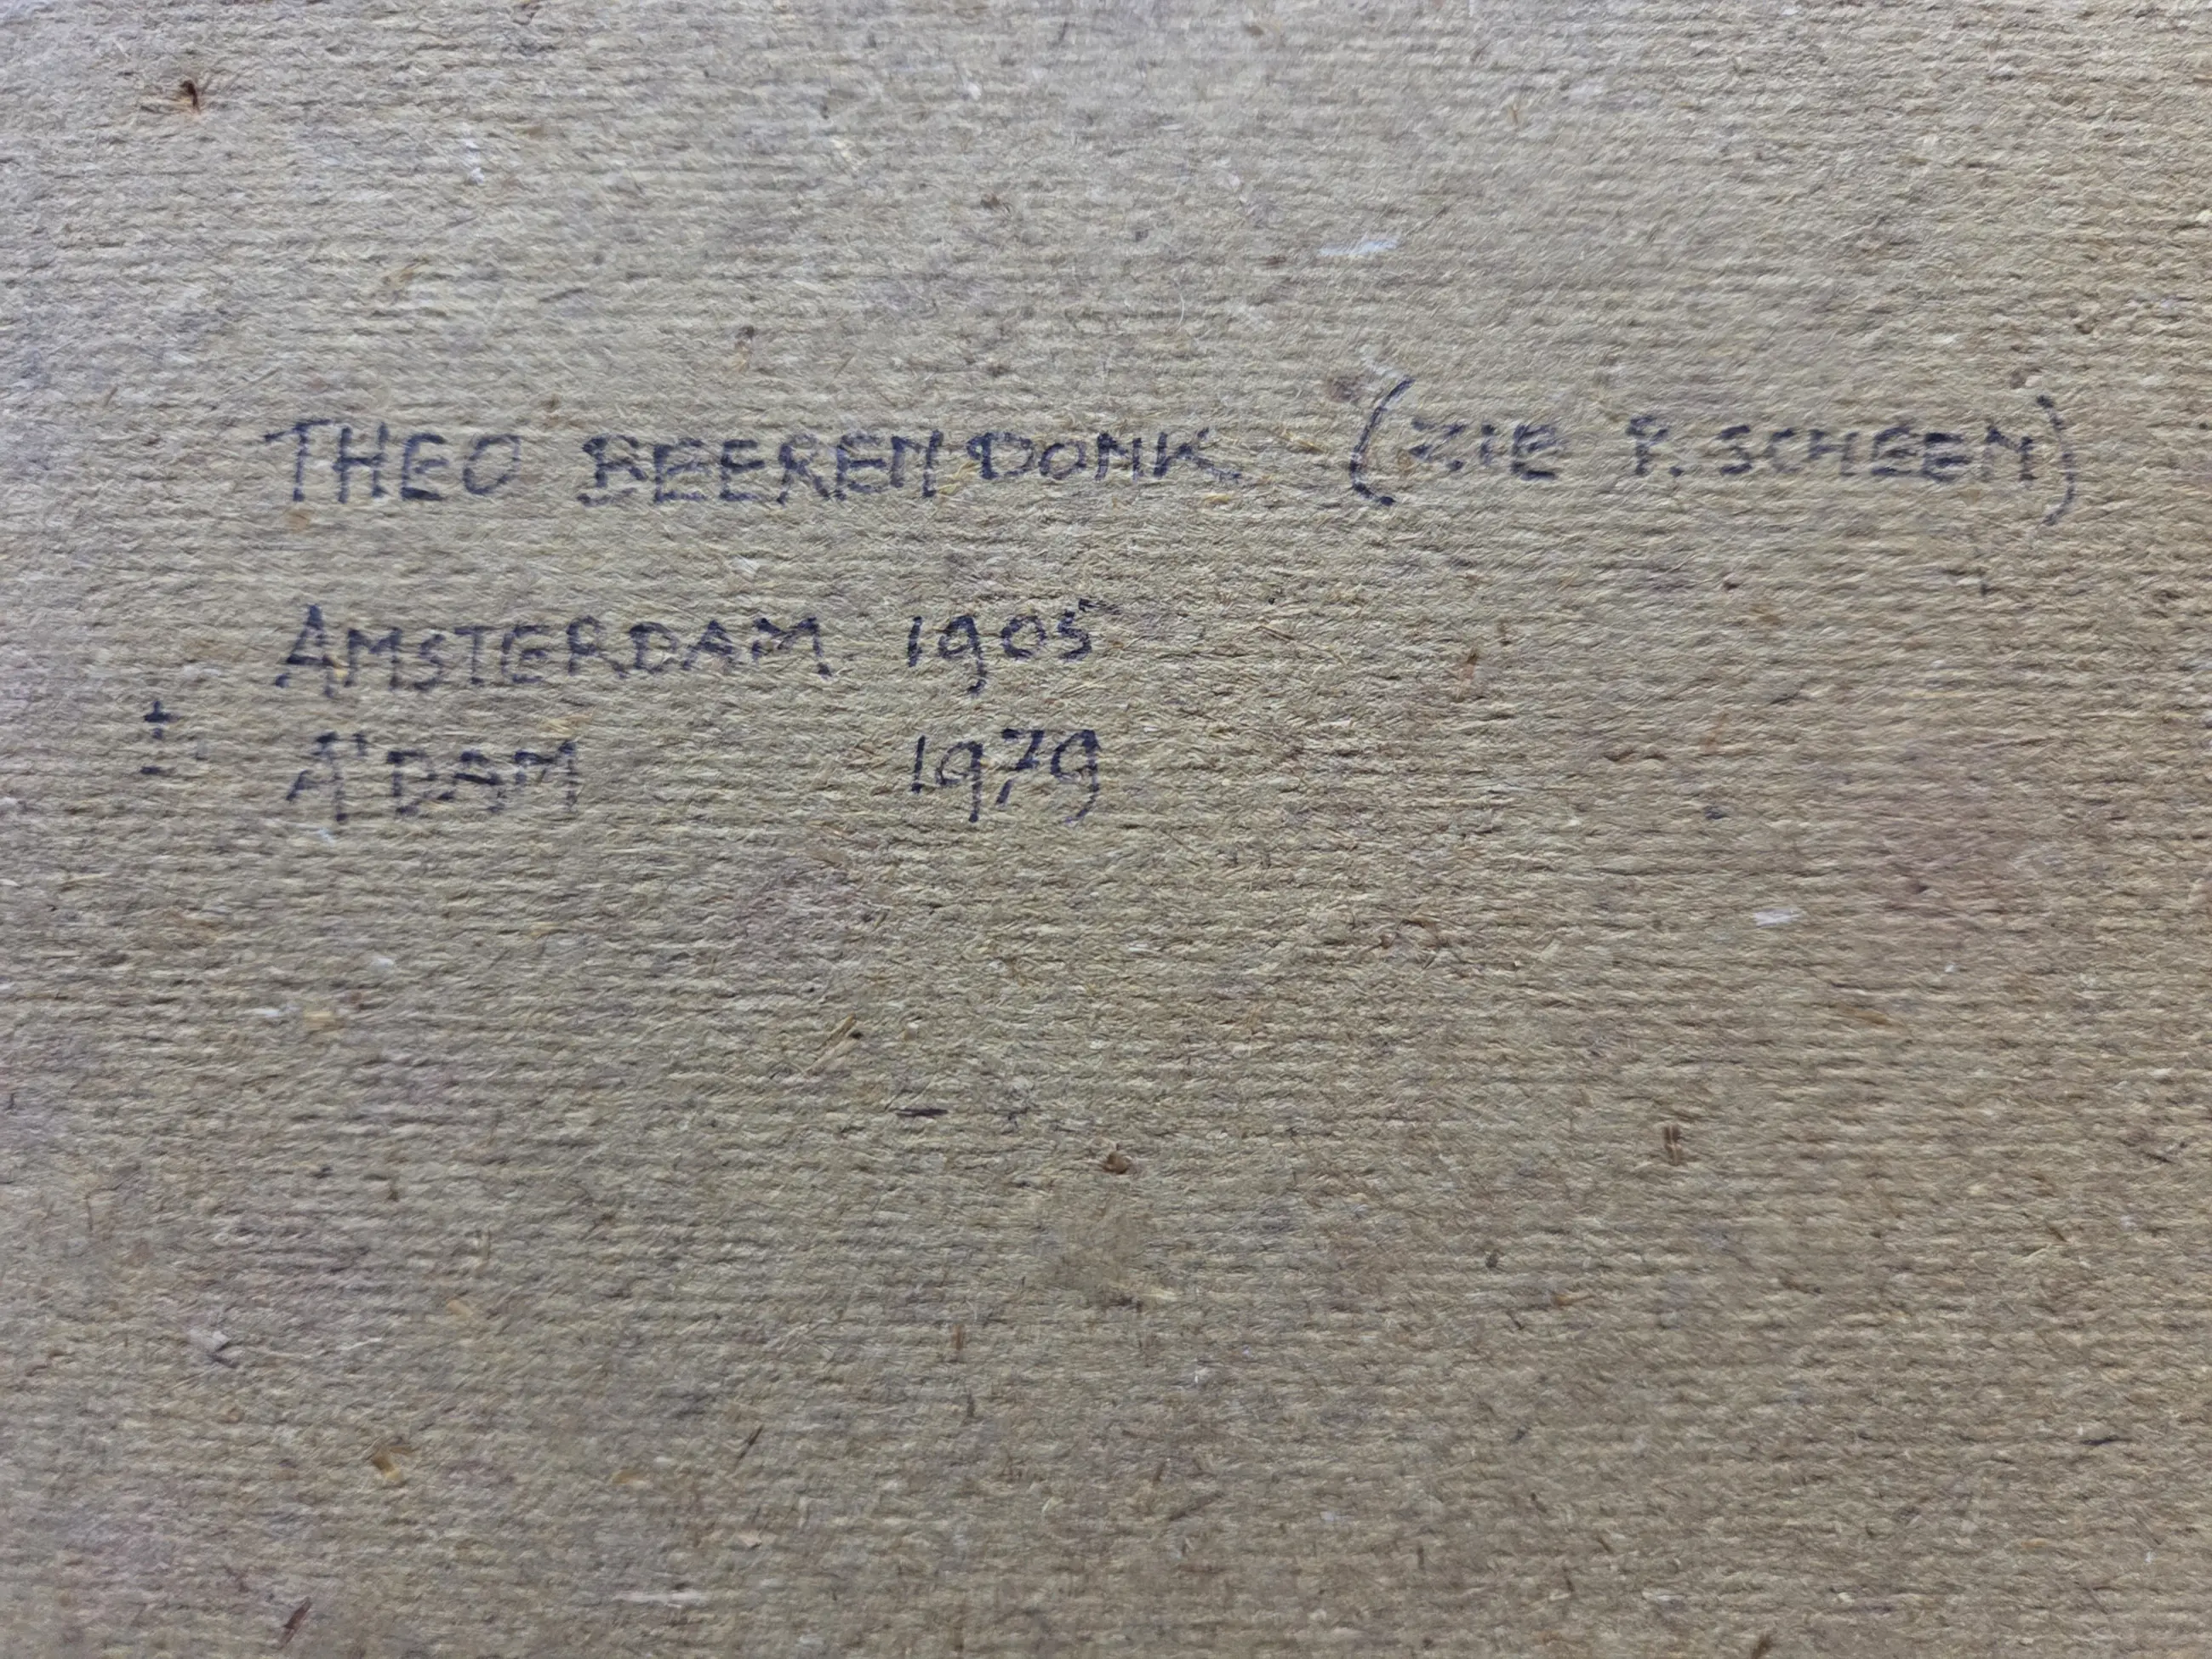 THEO BEERENDONK (ZIE P. SCHEEN)
AMSTERDAM 1905
± A'DAM 1979